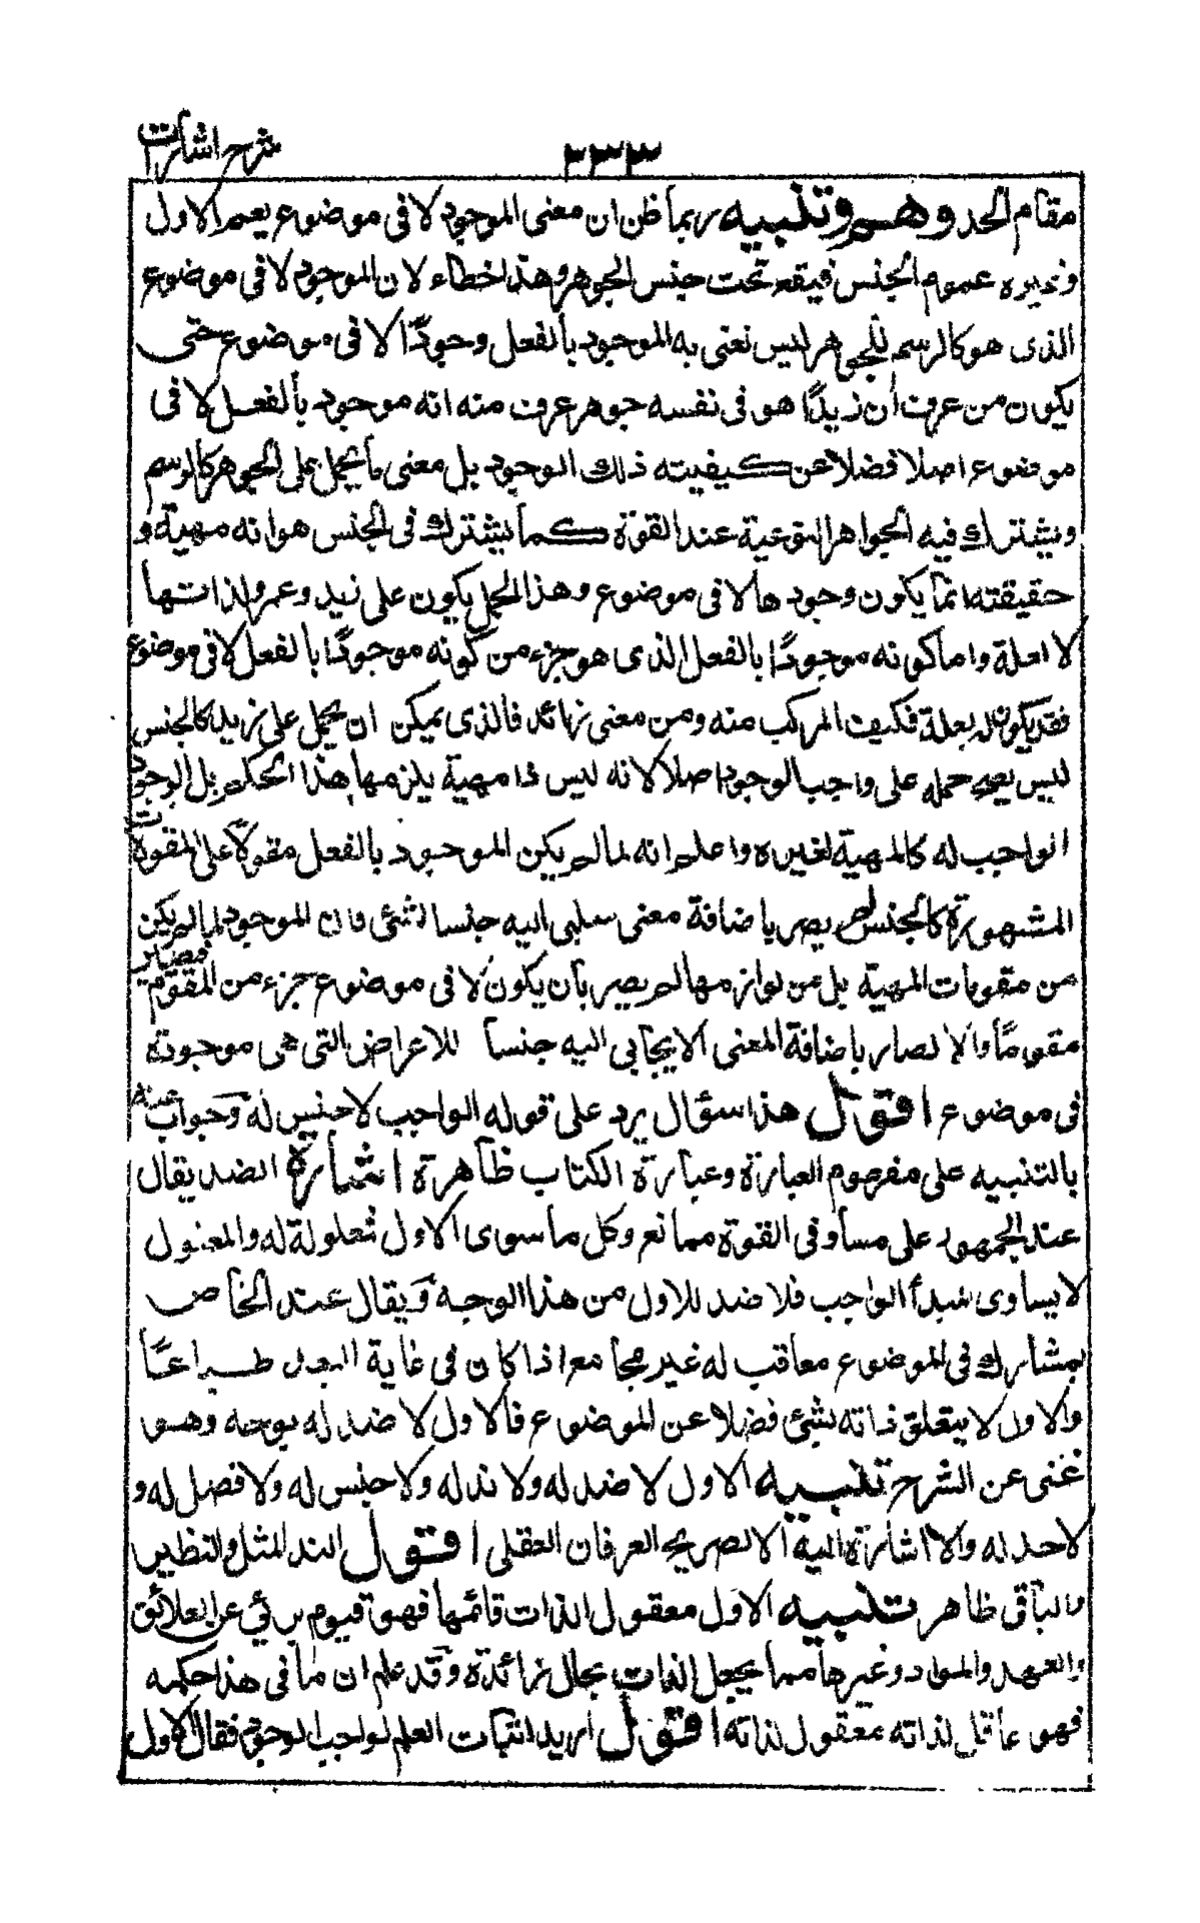 شرح اشارات
٢٣٣
مقام الحد وهم وتنبيه ربما ظن ان معنى الموجود لا فى موضوع يعم الاول
وغيره عموم الجنس فيقع تحت جنس الجوهر وهذا خطاء لان الموجود لا فى موضوع
الذى هو كالرسم للجوهر ليس نعنى به الموجود بالفعل وجودًا لا فى موضوع حتى
يكون من عرف ان زيدًا هو فى نفسه جوهر عرف منه انه موجود بالفعل لا فى
موضوع اصلا فضلا عن كيفيته ذلك الوجود بل معنى ما يحمل على الجوهر كالرسم
ويشترك فيه الجواهر النوعية عند القوة كما يشترك فى الجنس هو انه مهية و
حقيقته انما يكون وجودها لا فى موضوع وهذا الحمل يكون على زيد وعمر ولذاتها
لا لعلة واما كونه موجودًا بالفعل الذى هو جزء من كونه موجودًا بالفعل لا فى موضوع
فقد يكون له بعلة فكيف المركب منه ومن معنى زائد فالذى يمكن ان يحمل على زيد كالجنس
ليس يصح حمله على واجب الوجود اصلا لانه ليس ذا مهية يلزمها هذا الحكم بل الوجود
الواجب له كالمهية لغيره واعلم انه لما لم يكن الموجود بالفعل مقولًا على المقولات
المشهورة كالجنس لم يصر باضافة معنى سلبى اليه جنسا لشئ فان الموجود لما لم يكن
من مقومات المهية بل من لوازمها لم يصر بان يكون لا فى موضوع جزء من المقوم فيصير
مقومًا والا لصار باضافة المعنى الايجابى اليه جنسا للاعراض التى هى موجودة
فى موضوع اقول هذا سؤال يرد على قوله الواجب لا جنس له وجواب عنه
بالتنبيه على مفهوم العبارة وعبارة الكتاب ظاهرة اشارة الضد يقال
عند الجمهور على مساو فى القوة ممانع وكل ما سوى الاول فمعلولة له والمعلول
لا يساوى مبدأ الواجب فلا ضد للاول من هذا الوجه ويقال عند الخاص
لمشارك فى الموضوع معاقب له غير مجامع اذا كان فى غاية البعد طباعًا
والاول لا يتعلق ذاته بشئ فضلا عن الموضوع فالاول لا ضد له بوجه وهو
غنى عن الشرح تنبيه الاول لا ضد له ولا ند له ولا جنس له ولا فصل له و
لا حد له والا اشارة اليه الا لصريح العرفان العقلى اقول الند المثل والنظير
والباقى ظاهر تنبيه الاول معقول الذات قائمها فهو قيوم برئ عن العلائق
والعهد والمواد وغيرها مما يجعل الذات بحال زائدة وقد علم ان ما فى هذا حكمه
فهو عاقل لذاته معقول لذاته اقول اريد اثبات العلم لواجب الوجود فقال الاول